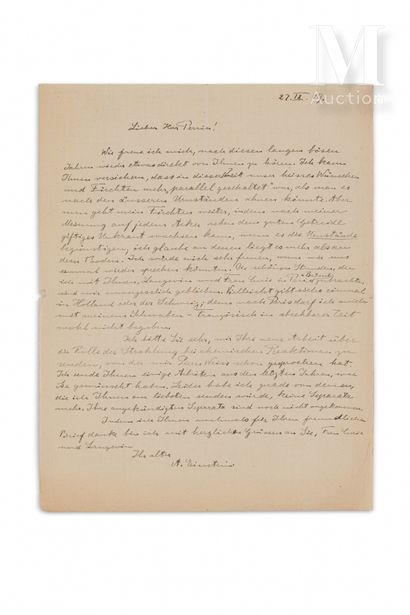 M
Auction
27. IX.
Lieber Herr Perrin!
Wie freue ich mich, nach diesen langen bösen
Jahren wieder etwas direkt von Ihnen zu hören. Ich kann
Ihnen versichern, dass in dieser Zeit unser heisses Wünschen
und Fürchten mehr parallel geschaltet war, als man es
nach den äusseren Umständen ahnen könnte. Aber
nun geht mein Fürchten weiter, indem nach meiner
Meinung auf jedem Acker neben dem guten Getreide
giftiges Unkraut wachsen kann, wenn es die Umstände
begünstigen; ich glaube an denen liegt es mehr als an
dem Boden. Ich würde mich sehr freuen, wenn wir uns
einmal wieder sprechen könnten. Die schönen Stunden, die
ich mit Ihnen, Langevin und Frau Curie in Paris
sind mir unvergesslich geblieben. Vielleicht gibt sich's einmal
in Holland oder der Schweiz; denn nach Paris darf ich mich
mit meinem Schwaben-Französisch in absehbarer Zeit
wohl nicht begeben.
Ich bitte Sie sehr, mir Ihre neue Arbeit über
die Rolle der Strahlung bei chemischen Reaktionen zu
senden, von der mir Pierre Weiss schon gesprochen hat.
Ich sende Ihnen einige Arbeiten aus den letzten Jahren, wie
Sie gewünscht haben. Leider habe ich grade von denen,
die ich Ihnen am liebsten senden würde, keine Separata
mehr. Ihre angekündigten Separata sind noch nicht angekommen.
Indem ich Ihnen nochmals für Ihren freundlichen
Brief danke bin ich mit herzlichen Grüssen an Sie, Frau Curie
und Langevin
Ihr alter
A. Einstein